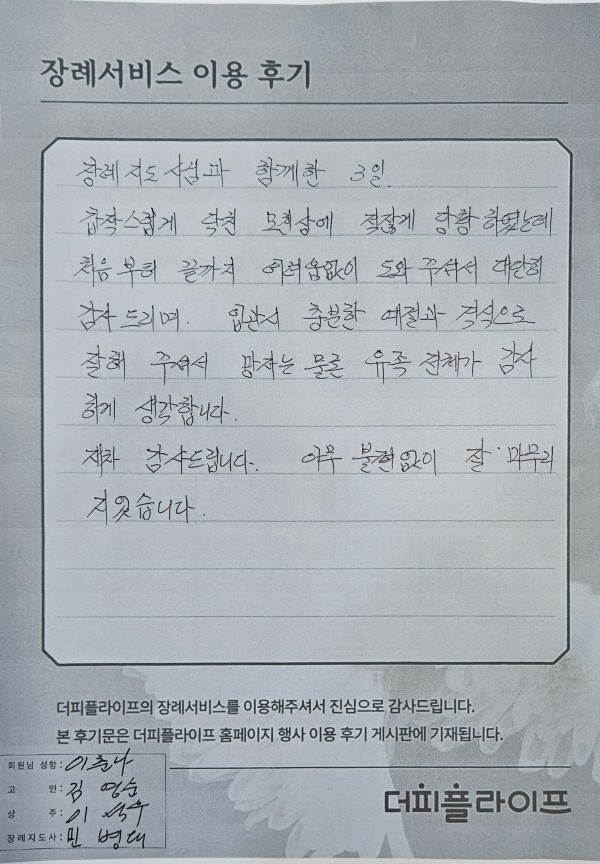 장례서비스 이용 후기
장례지도사님과 함께한 3일.
갑작스럽게 닥친 모친상에 적잖게 당황하였는데
처음부터 끝까지 어려움없이 도와주셔서 대단히
감사드리며. 입관시 충분한 예절과 격식으로
잘해 주셔서 망자는 물론 유족 전체가 감사
하게 생각합니다.
재차 감사드립니다. 아무 불편없이 잘 마무리
지었습니다.
더피플라이프의 장례서비스를 이용해주셔서 진심으로 감사드립니다.
본 후기문은 더피플라이프 홈페이지 행사 이용 후기 게시판에 기재됩니다.
회원님 성함 : 이춘나
고 인 : 김 영순
상 주 : 이
장례지도사 : 민 병대
더피플라이프